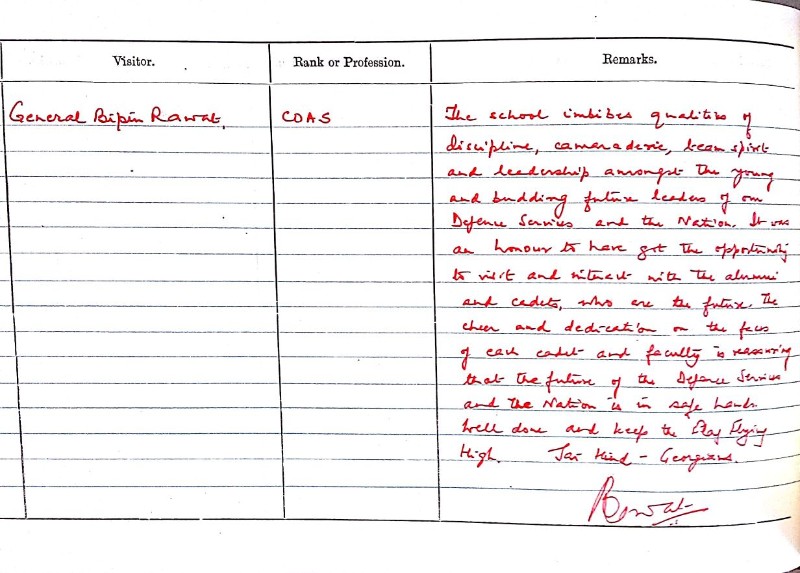 Visitor.
Rank or Profession.
Remarks.
General Bipin Rawat,
COAS
The school imbibes qualities of
discipline, camaraderie, team spirit
and leadership amongst the young
and budding future leaders of our
Defence Services and the Nation. It was
an honour to have got the opportunity
to visit and interact with the alumni
and cadets, who are the future. The
cheer and dedication on the faces
of each cadet and faculty is reassuring
that the future of the Defence Services
and the Nation is in safe hands.
Well done and keep the Flag Flying
High. Jai Hind - Georgians.
Rawat